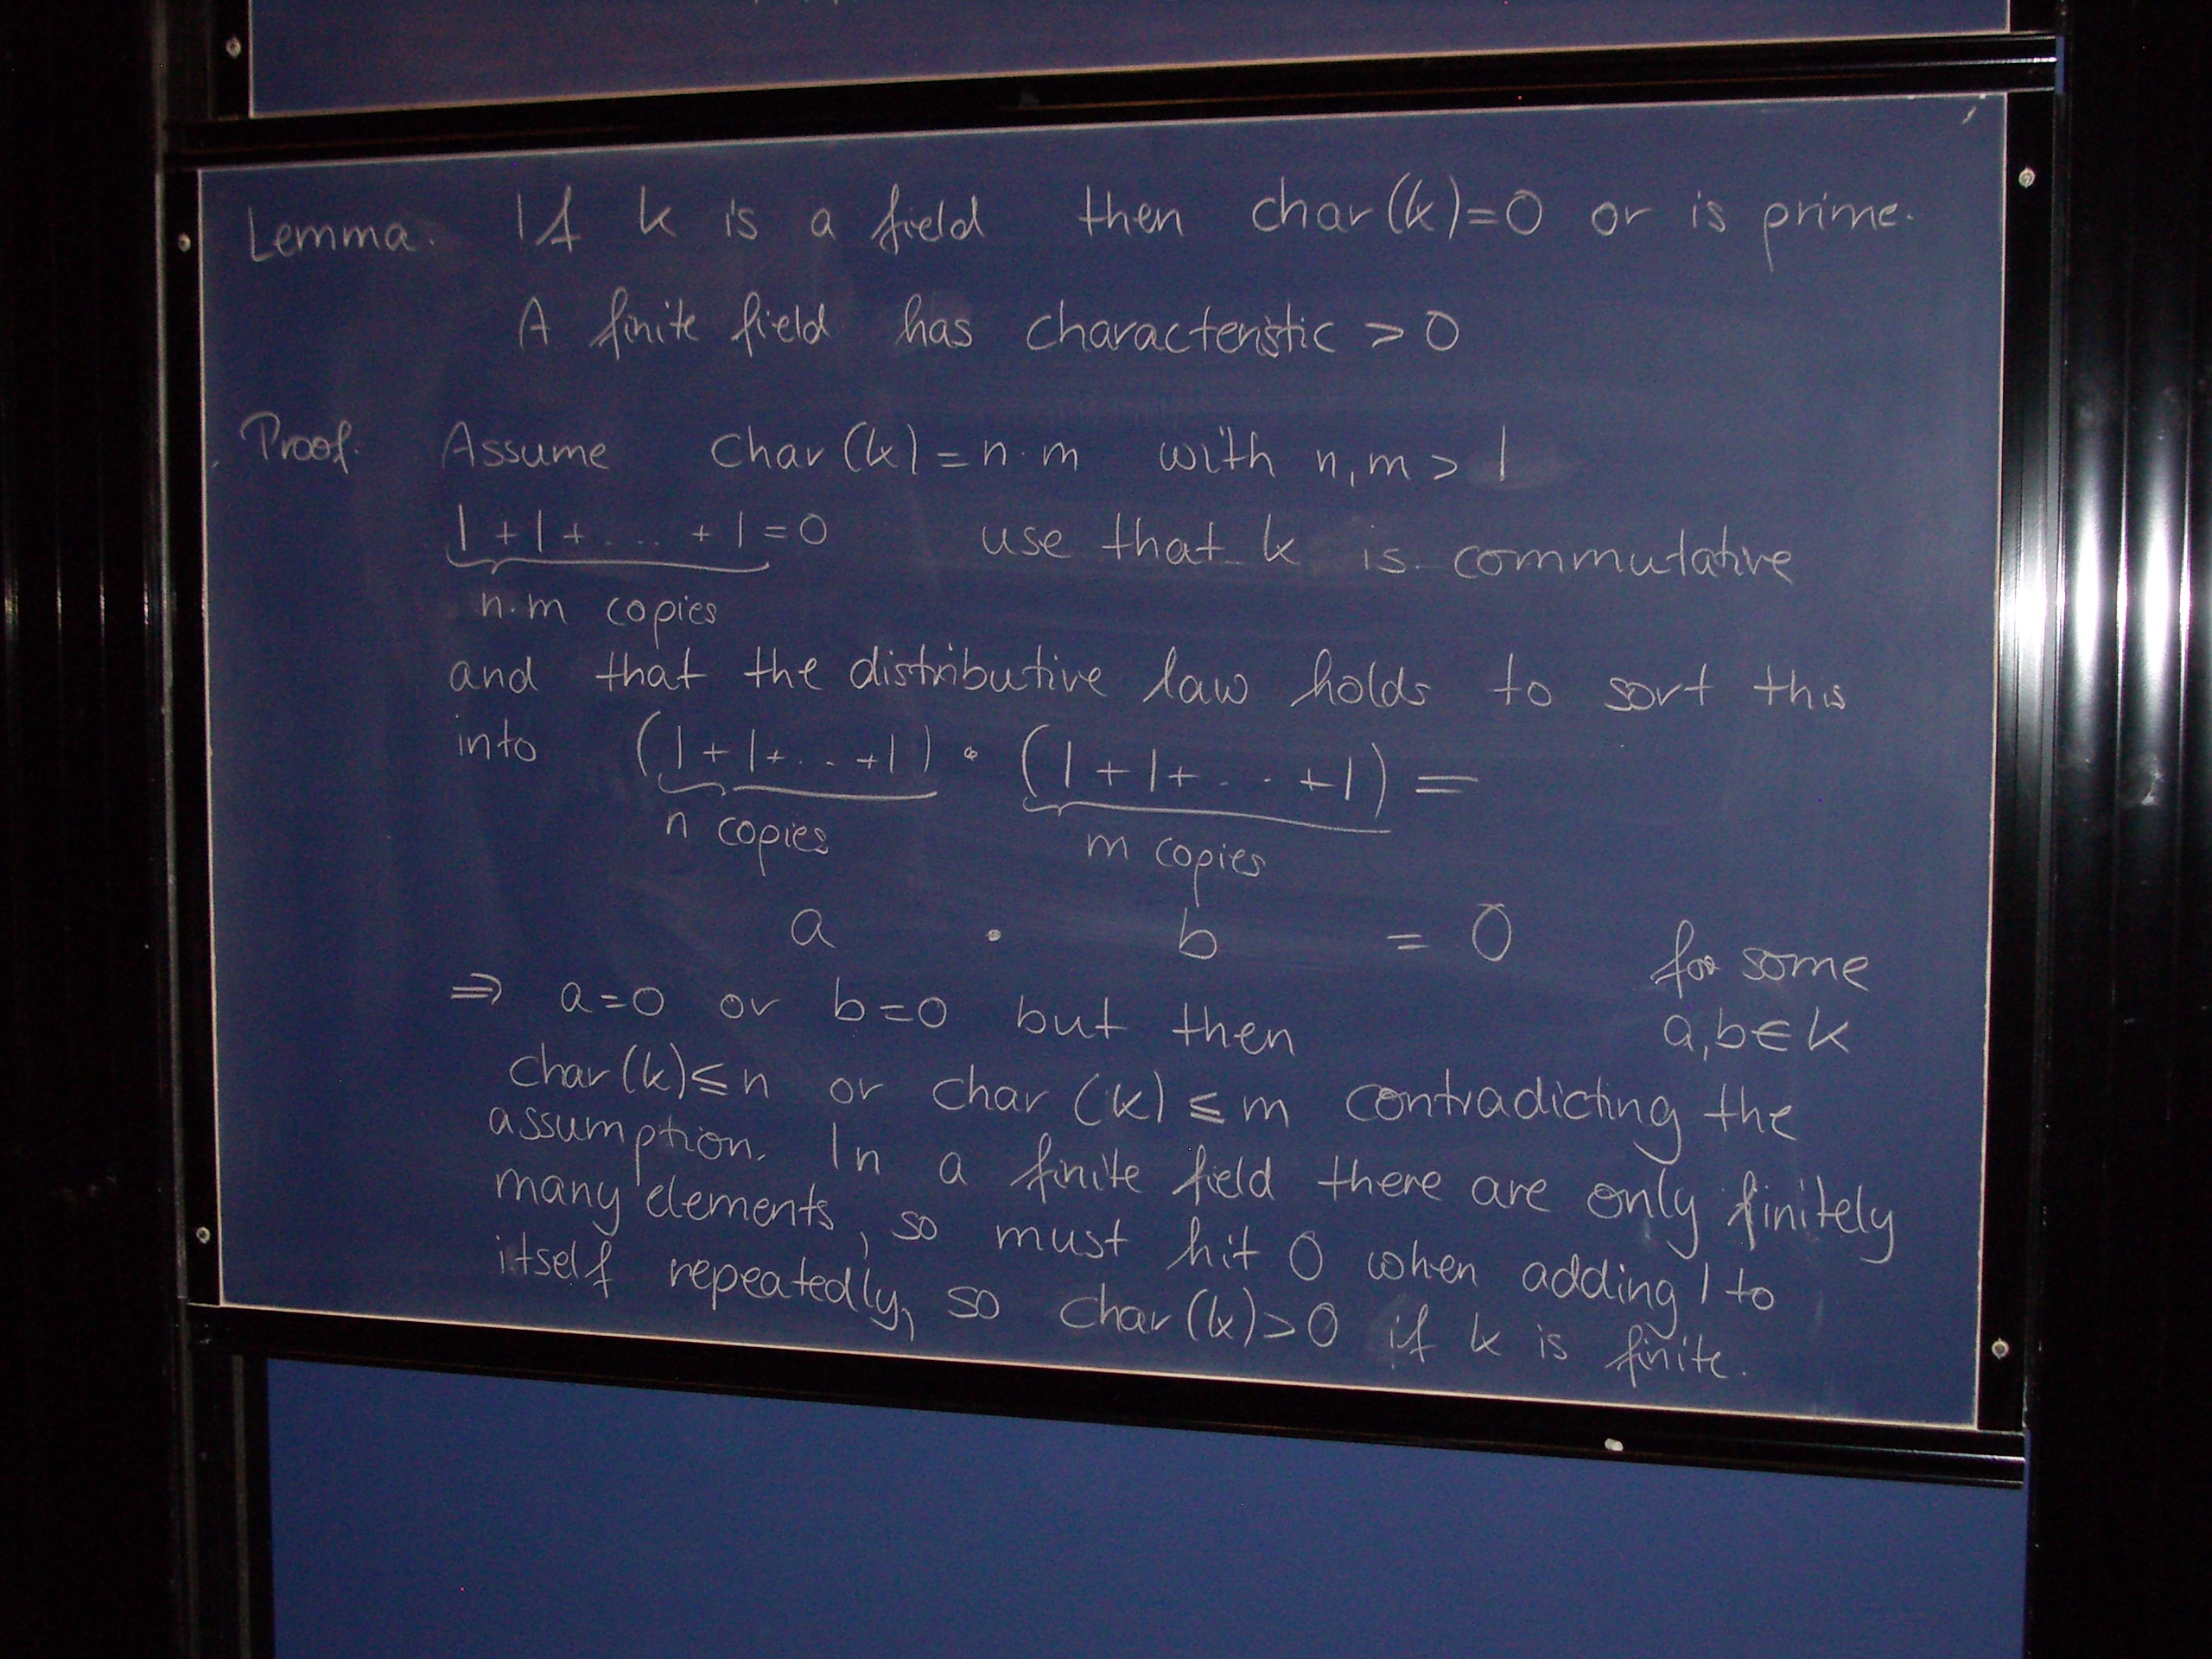 Lemma. If k is a field then char(k)=0 or is prime.
A finite field has characteristic > 0
Proof. Assume char(k)=n·m with n,m > 1
1+1+....+1=0 use that k is commutative
n·m copies
and that the distributive law holds to sort this
into (1+1+...+1) · (1+1+...+1) =
n copies m copies
a · b = 0 for some
⇒ a=0 or b=0 but then a,b∈k
char(k)≤n or char(k)≤m contradicting the
assumption. In a finite field there are only finitely
many elements, so must hit 0 when adding 1 to
itself repeatedly, so char(k)>0 if k is finite.